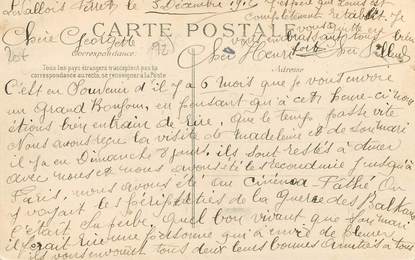 Levallois Perret le 3 Décembre 191 J'espère que Louis est
complètement rétabli. Je
CARTE POSTALE
Chère Georgette
Cher Henri
Correspondance
Tous les pays étrangers n'acceptent pas la
correspondance au recto, se renseigner à la Poste.
Adresse
C'est en Souvenir d'il y a 6 mois que je vous envoie
un Grand Bonjour, en pensant qu'à cette heure-ci nous
étions bien entrain de rire, que le temps passe vite
Nous avons reçu la visite de Madeleine et de son mari
il y a eu Dimanche 8 jours, ils sont restés à diner
avec nous et nous avons été les reconduire jusqu'à
Paris, nous avons été au cinéma Pathé. On
y voyait les péripéties de la guerre des Balkans
c'était superbe. Quel bon vivant que son mari
il ferait rire une personne qui a envie de pleurer
ils vous envoient tous deux leurs bonnes amitiés à tous